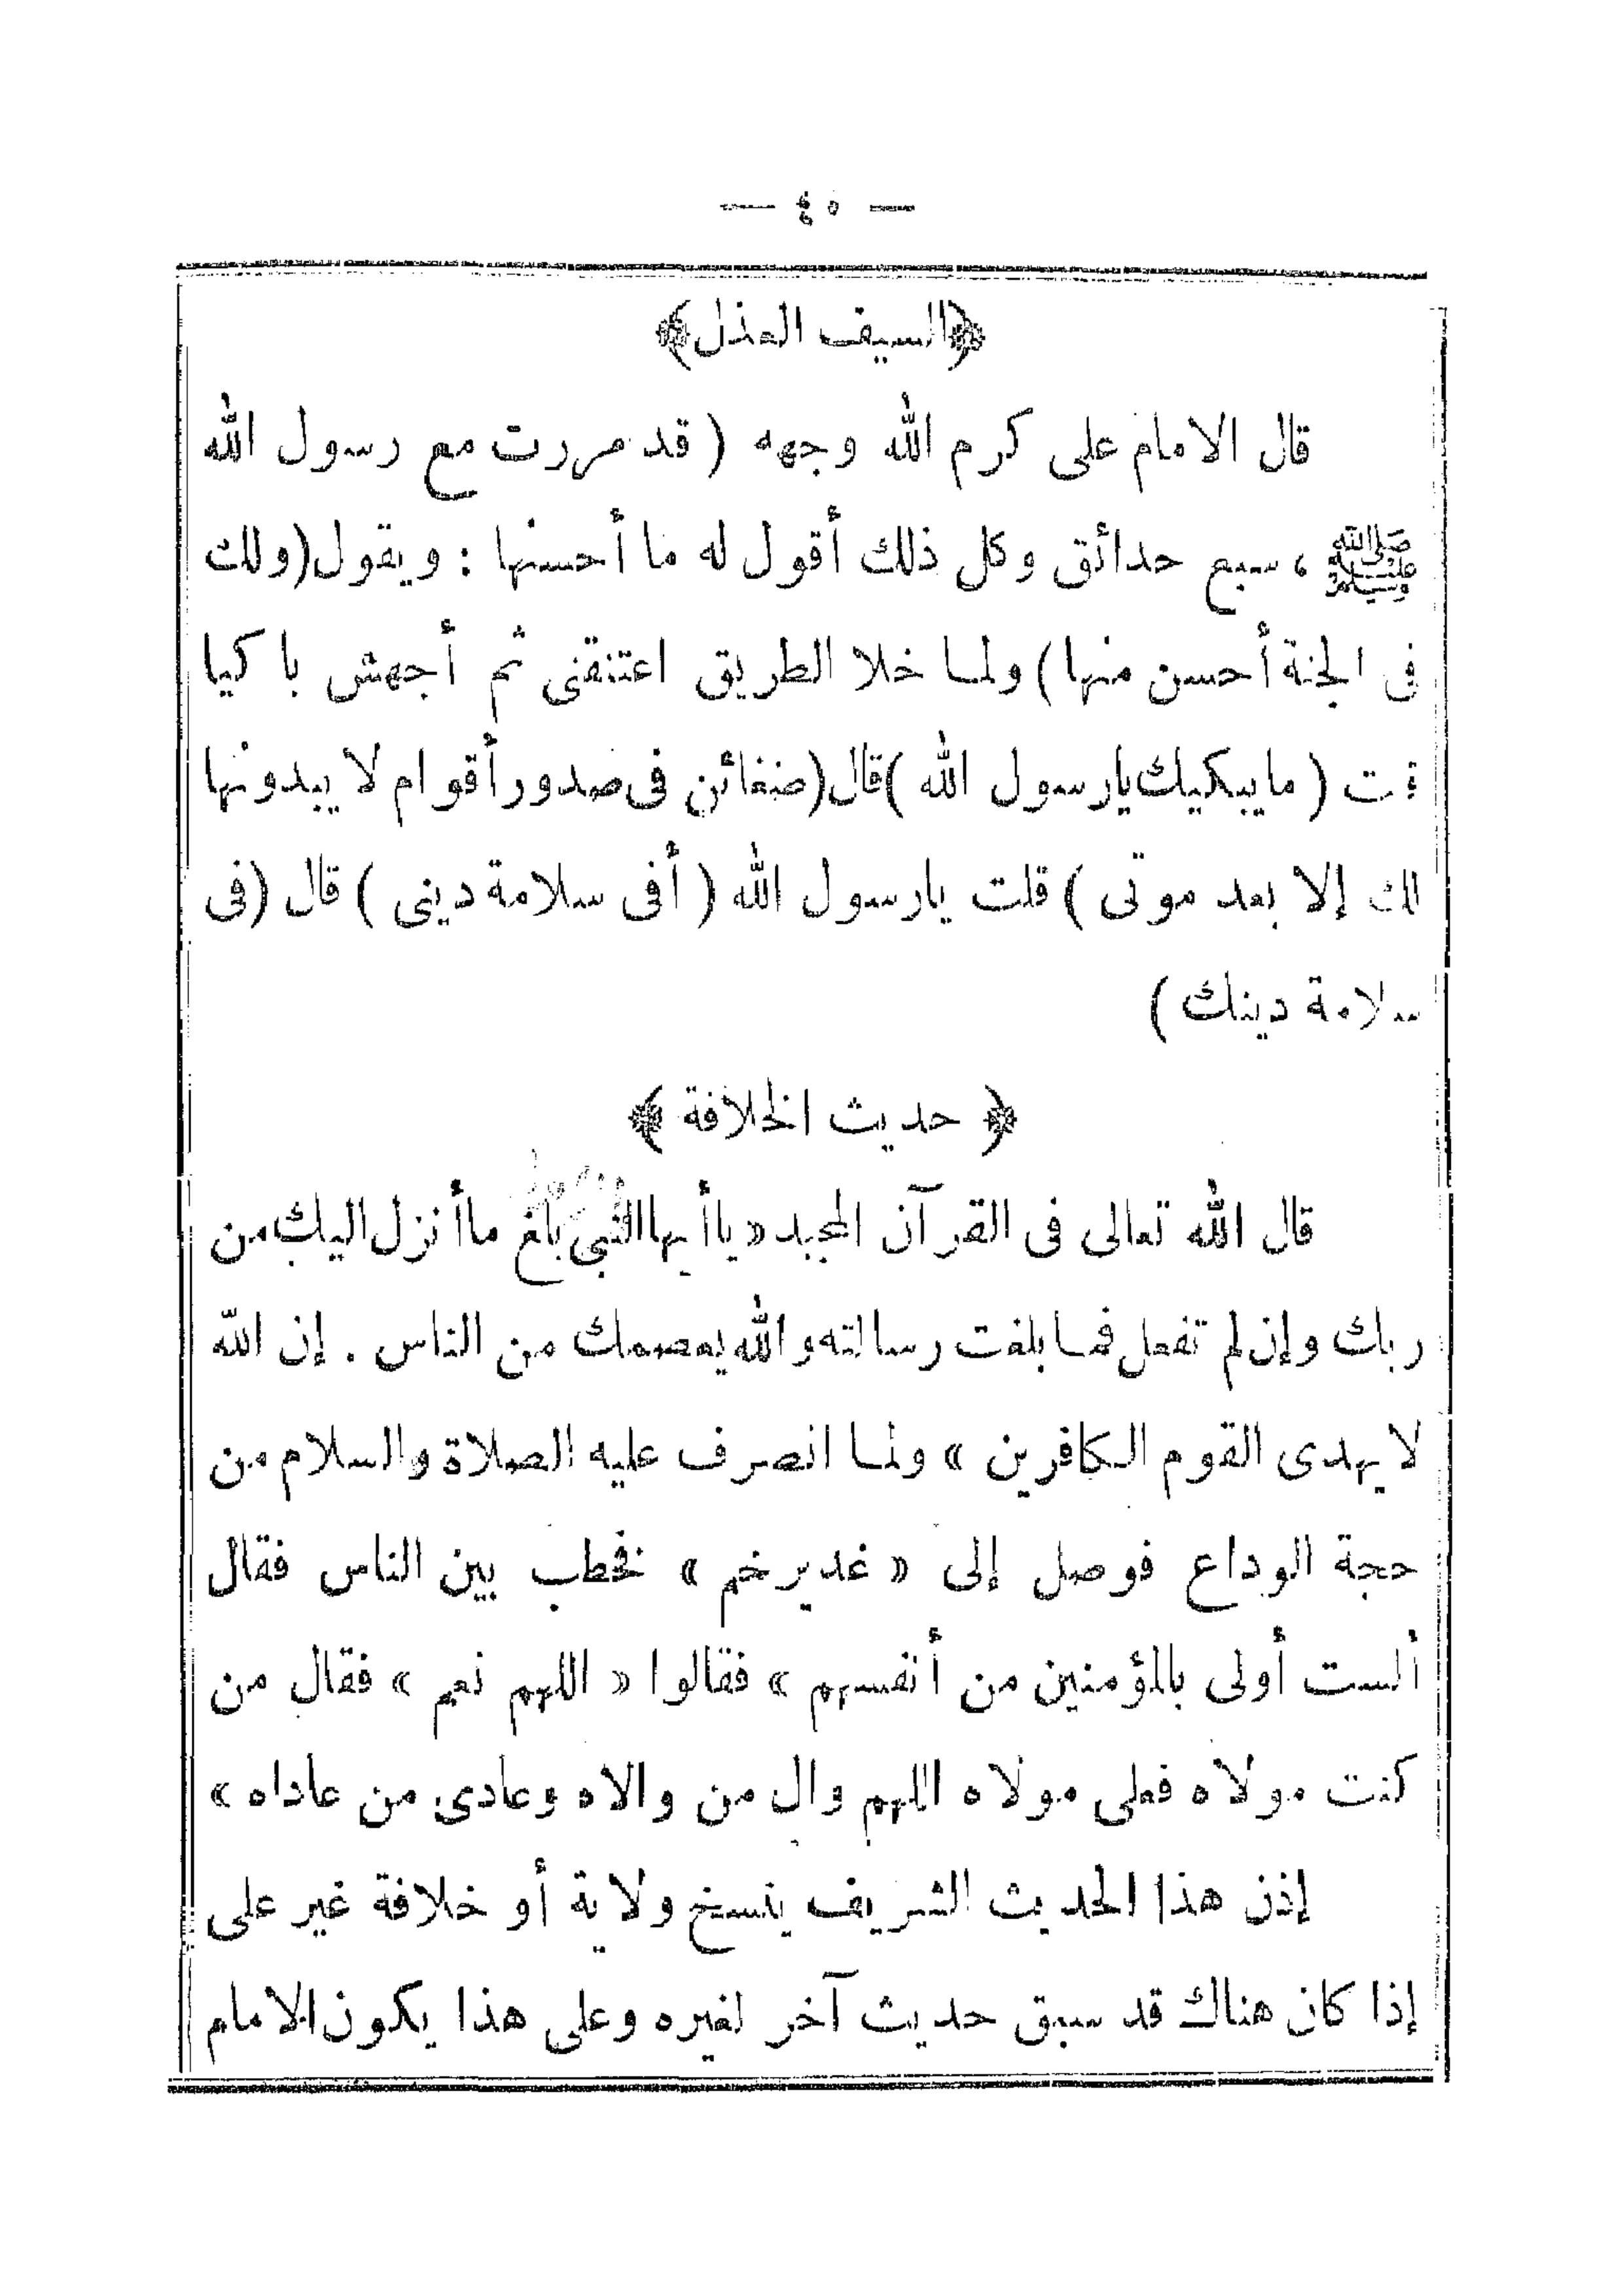 — ٤٥ —
﴿السيف العذل﴾
قال الامام على كرم الله وجهه ( قد مررت مع رسول الله
ﷺ، سبع حدائق وكل ذلك أقول له ما أحسنها : ويقول (ولك
فى الجنة أحسن منها) ولما خلا الطريق اعتنقنى ثم أجهش باكيا
ت ( مايبكيك يارسول الله )قال(ضغائن فى صدور أقوام لا يبدونها
لك إلا بعد موتى ) قلت يارسول الله ( أفى سلامة دينى ) قال (فى
سلامة دينك )
﴿ حديث الخلافة ﴾
قال الله تعالى فى القرآن المجيد « ياأيها النبي بلغ ماأنزل اليك من
ربك وإن لم تفعل فما بلغت رسالته والله يعصمك من الناس . إن الله
لا يهدى القوم الكافرين » ولما انصرف عليه الصلاة والسلام من
حجة الوداع فوصل إلى « غدير خم » خطب بين الناس فقال
ألست أولى بالمؤمنين من أنفسهم » فقالوا « اللهم نعم » فقال من
كنت مولاه فعلى مولاه اللهم وال من والاه وعادى من عاداه »
إذن هذا الحديث الشريف ينسخ ولاية أو خلافة غير على
إذا كان هناك قد سبق حديث آخر لغيره وعلى هذا يكون الامام